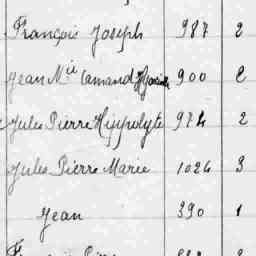 François Joseph 987 2
Jean Mie Camand 900 2
Jules Pierre Hippolyte 974 2
Jules Pierre Marie 1026 3
Jean 390 1